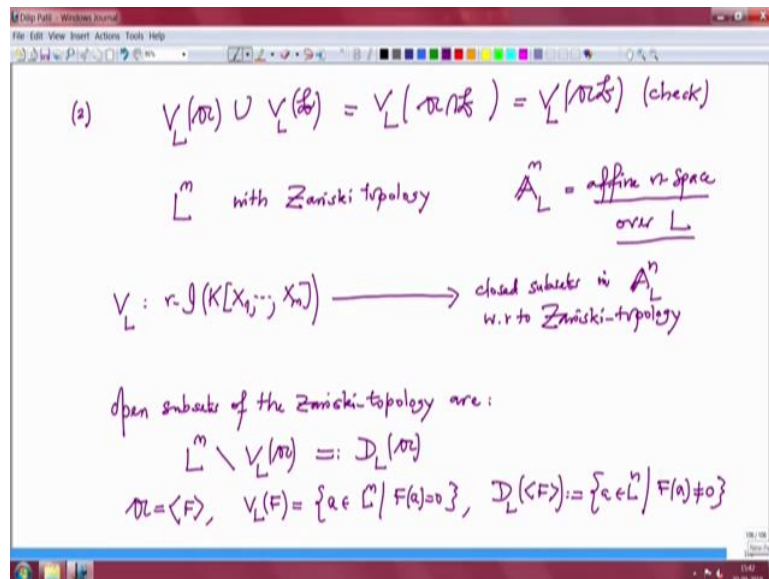 Dilip Patil - Windows Journal
File Edit View Insert Actions Tools Help
(2) V_L(𝔞) ∪ V_L(𝔟) = V_L(𝔞∩𝔟) = V_L(𝔞𝔟) (check)
L^n with Zariski topology 𝔸^n_L = affine n-space
over L
V_L : r-𝓘(K[X_1,…,X_n]) ⟶ closed subsets in 𝔸^n_L
w.r to Zariski-topology
Open subsets of the Zariski-topology are:
L^n \ V_L(𝔞) =: D_L(𝔞)
𝔞 = ⟨F⟩, V_L(F) = {a ∈ L^n | F(a)=0}, D_L(⟨F⟩) := {a ∈ L^n | F(a) ≠ 0}